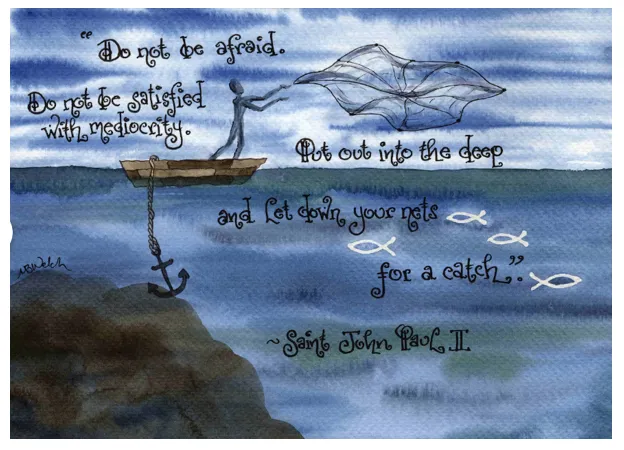 "Do not be afraid.
Do not be satisfied
with mediocrity.
Put out into the deep
and let down your nets
for a catch".
MBWelch
~Saint John Paul II